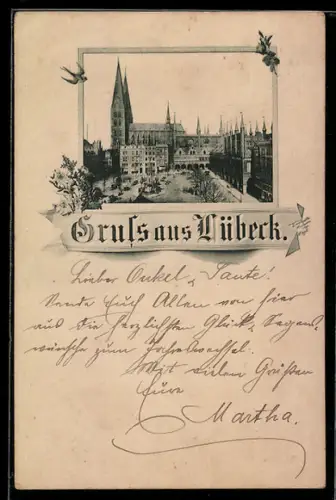 Gruſs aus Lübeck.
Lieber Onkel u. Tante!
Sende Euch Allen von hier
aus die herzlichsten Glück- u. Segens-
wünsche zum Jahreswechsel.
Mit vielen Grüßen
Eure
Martha.